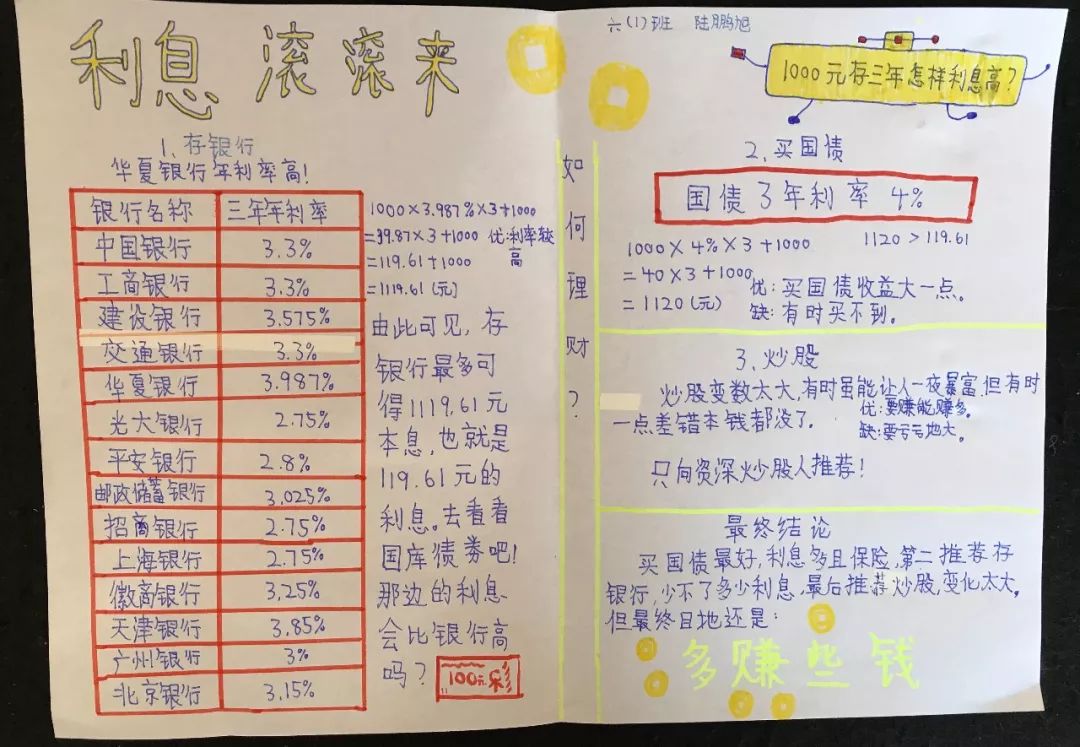 利息滚滚来
1、存银行
华夏银行年利率高!
银行名称 三年年利率
中国银行 3.3%
工商银行 3.3%
建设银行 3.575%
交通银行 3.3%
华夏银行 3.987%
光大银行 2.75%
平安银行 2.8%
邮政储蓄银行 3.025%
招商银行 2.75%
上海银行 2.75%
徽商银行 3.25%
天津银行 3.85%
广州银行 3%
北京银行 3.15%
1000×3.987%×3+1000
=39.87×3+1000
=119.61+1000
=1119.61(元)
优:利率较
高
由此可见,存
银行最多可
得1119.61元
本息,也就是
119.61元的
利息。去看看
国库债券吧!
那边的利息
会比银行高
吗?
100元
如何理财?
六(1)班 陆鹏旭
1000元存三年怎样利息高?
2、买国债
国债3年利率4%
1000×4%×3+1000
=40×3+1000
=1120(元)
1120>119.61
优:买国债收益大一点。
缺:有时买不到。
3、炒股
炒股变数太大,有时虽能让人一夜暴富,但有时
一点差错本钱都没了。
优:要赚能赚多。
缺:要亏亏地大。
只向资深炒股人推荐!
最终结论
买国债最好,利息多且保险,第二推荐存
银行,少不了多少利息,最后推荐炒股,变化太大。
但最终目地还是:
多赚些钱